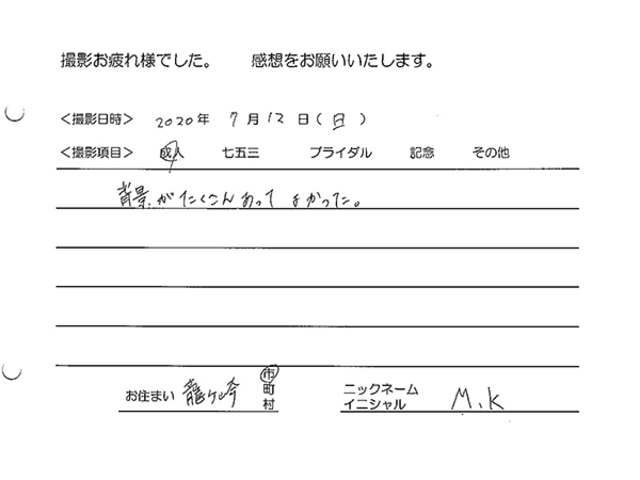 撮影お疲れ様でした。 感想をお願いいたします。
<撮影日時> 2020年 7月12日(日)
<撮影項目> 成人 七五三 ブライダル 記念 その他
背景がたくさんあって よかった。
お住まい 龍ヶ崎 市 町 村
ニックネーム イニシャル M.K